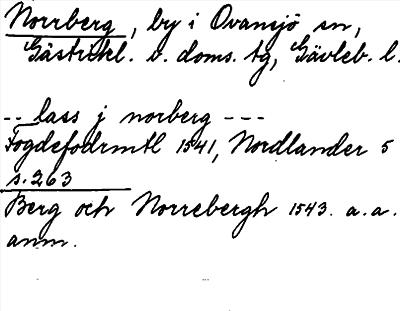 Norrberg, by i Ovansjö sn,
Gästrikl. v. doms. tg, Gävleb. l.
-- lass j norberg ---
Fogdefodrmtl 1541, Nordlander 5
s. 263
Berg och Norrebergh 1543. a. a.
anm.